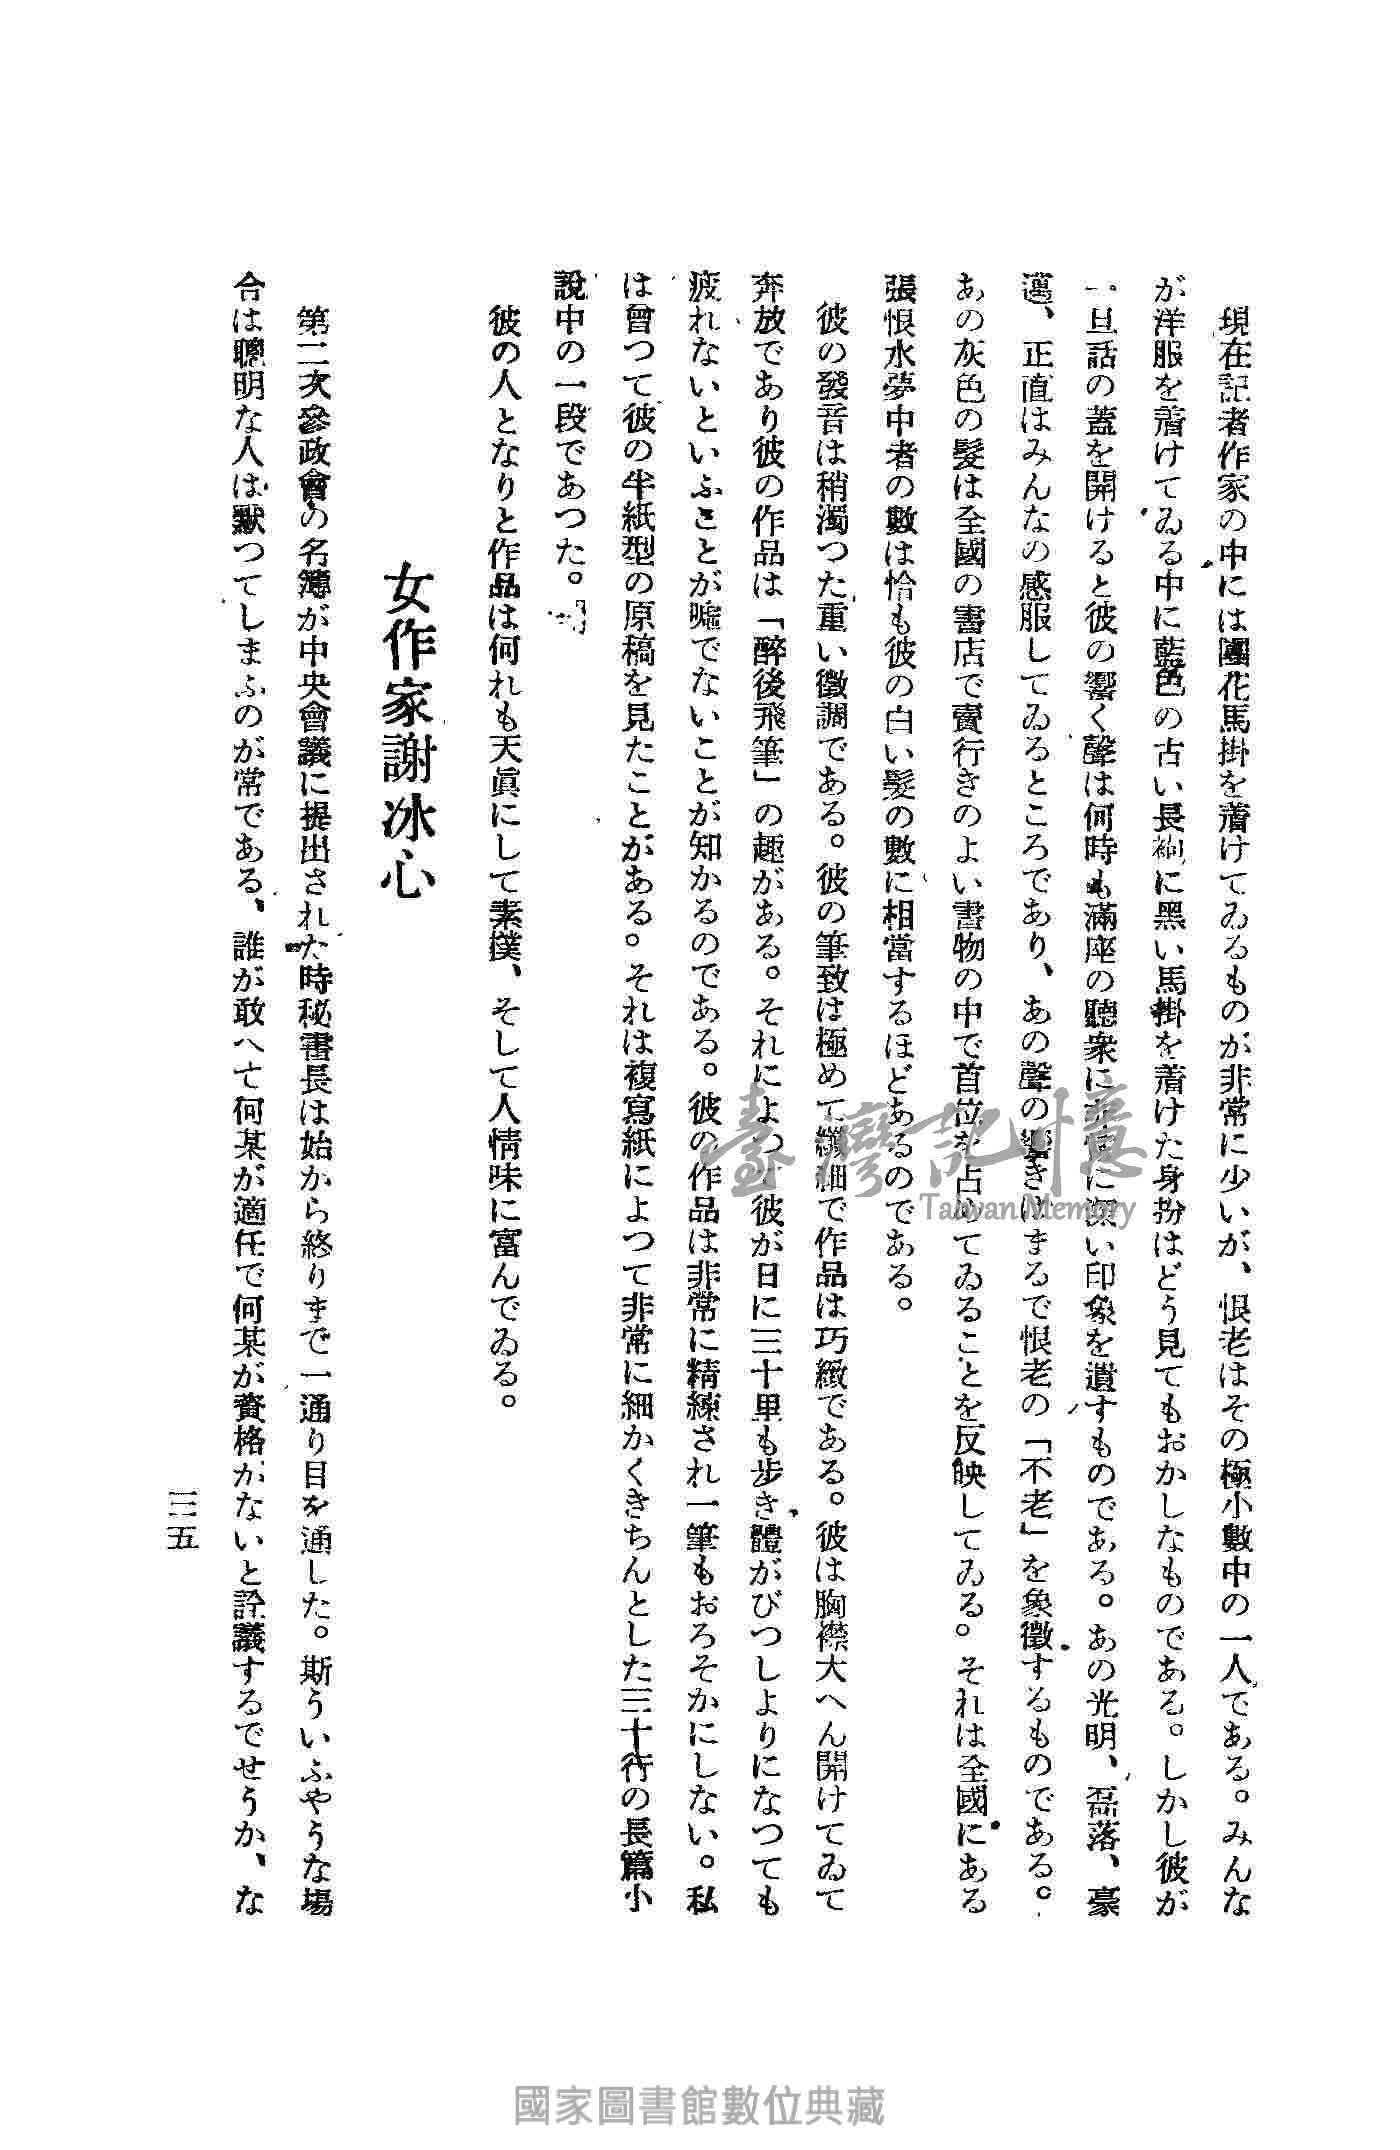 現在記者作家の中には團花馬掛を着けてゐるものが非常に少いが、恨老はその極小數中の一人である。みんな
が洋服を着けてゐる中に藍色の古い長袍に黑い馬掛を着けた身扮はどう見てもおかしなものである。しかし彼が
一旦話の蓋を開けると彼の響く聲は何時も滿座の聽衆に非常に深い印象を遺すものである。あの光明、磊落、豪
邁、正直はみんなの感服してゐるところであり、あの聲の響きはまるで恨老の「不老」を象徵するものである。
あの灰色の髮は全國の書店で賣行きのよい書物の中で首位を占めてゐることを反映してゐる。それは全國にある
張恨水夢中者の數は恰も彼の白い髮の數に相當するほどあるのである。
彼の發音は稍濁つた重い徽調である。彼の筆致は極めて纖細で作品は巧緻である。彼は胸襟大へん開けてゐて
奔放であり彼の作品は「醉後飛筆」の趣がある。それによつて彼が日に三十里も步き體がびつしよりになつても
疲れないといふことが噓でないことが知かるのである。彼の作品は非常に精練され一筆もおろそかにしない。私
は曾つて彼の半紙型の原稿を見たことがある。それは複寫紙によつて非常に細かくきちんとした三十行の長篇小
說中の一段であつた。
彼の人となりと作品は何れも天眞にして素撲、そして人情味に富んでゐる。
女作家謝冰心
第二次參政會の名簿が中央會議に提出された時秘書長は始から終りまで一通り目を通した。斯ういふやうな場
合は聰明な人は默つてしまふのが常である、誰が敢へて何某が適任で何某が資格がないと詮議するでせうか、な
三五
臺灣記憶
Taiwan Memory
國家圖書館數位典藏